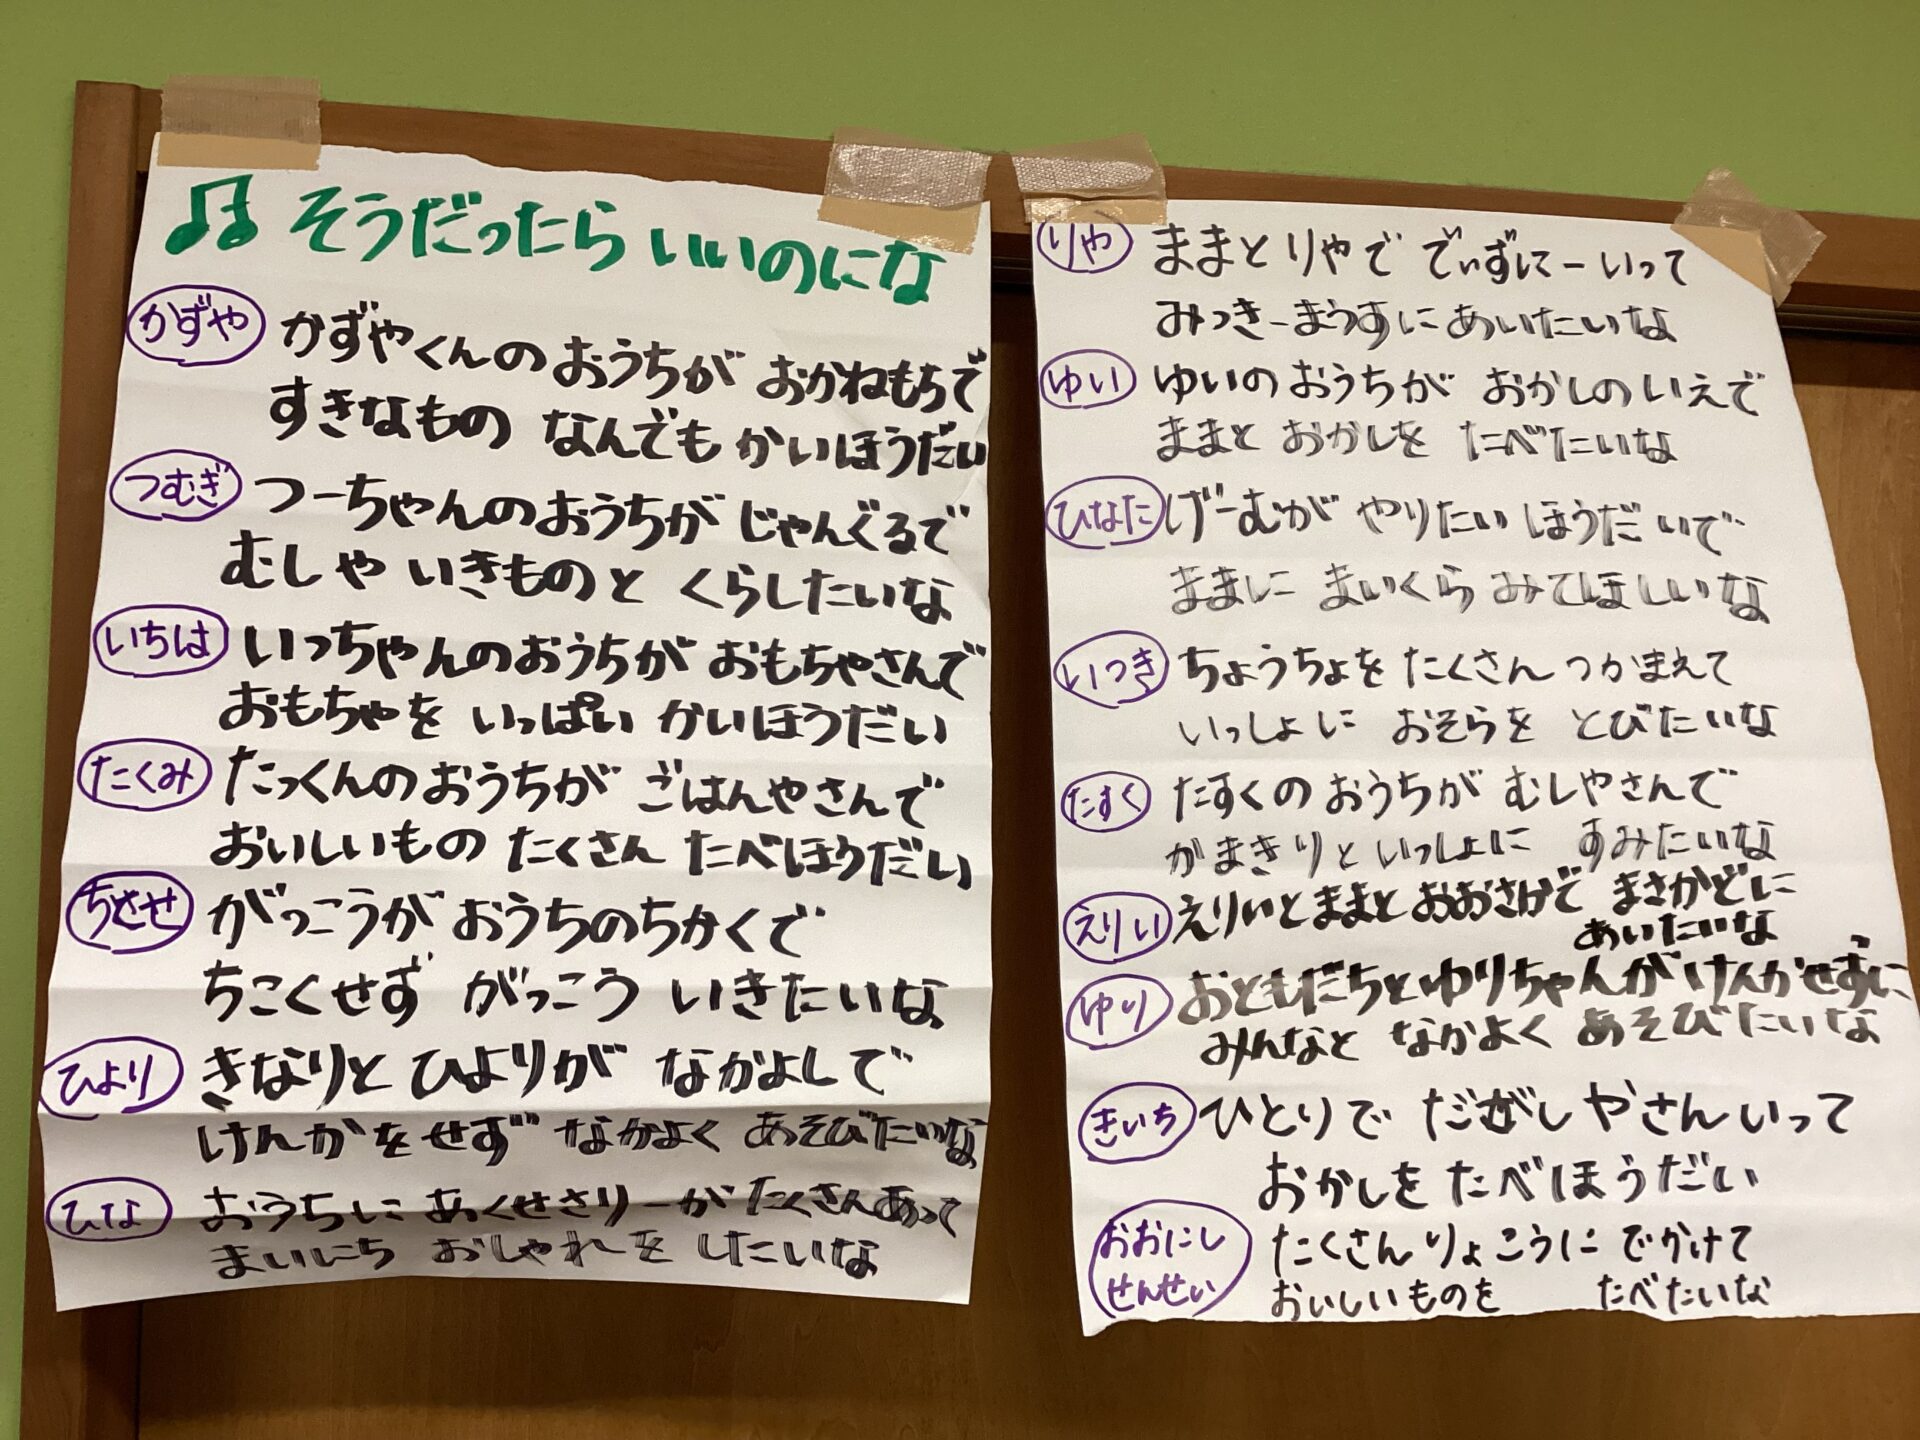 ♫ そうだったら いいのにな
かずや かずやくんの おうちが おかねもちで
すきなもの なんでも かいほうだい
つむぎ つーちゃんの おうちが じゃんぐるで
むしや いきものと くらしたいな
いちは いっちゃんの おうちが おもちゃさんで
おもちゃを いっぱい かいほうだい
たくみ たっくんの おうちが ごはんやさんで
おいしいもの たくさん たべほうだい
ちとせ がっこうが おうちの ちかくで
ちこくせず がっこう いきたいな
ひより きなりと ひよりが なかよしで
けんかをせず なかよく あそびたいな
ひな おうちに あくせさりーが たくさんあって
まいにち おしゃれを したいな
りや ままと りやで でぃずにーいって
みっきーまうすに あいたいな
ゆい ゆいの おうちが おかしの いえで
ままと おかしを たべたいな
ひなた げーむが やりたい ほうだいで
ままに まいくら みてほしいな
いつき ちょうちょを たくさん つかまえて
いっしょに おそらを とびたいな
たすく たすくの おうちが むしやさんで
かまきりと いっしょに すみたいな
えりい えりいと ままと おおさかで まさかどに
あいたいな
ゆり おともだちと ゆりちゃんが けんかせずに
みんなと なかよく あそびたいな
きいち ひとりで だがしやさん いって
おかしを たべほうだい
おおにし たくさん りょこうに でかけて
せんせい おいしいものを たべたいな